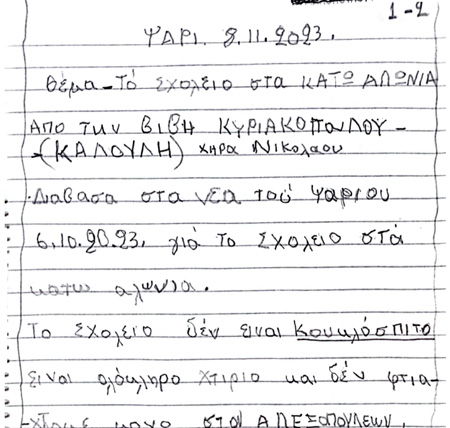 1-2
ΨΑΡΙ. 8.11.2023.
θέμα-Τό Σχολειο στα ΚΑΤΩ ΑΛΩΝΙΑ
Απο την ΒΙΒΗ ΚΥΡΙΑΚΟΠΟΥΛΟΥ-
-(ΚΑΛΟΥΛΗ) χηρα Νικολαου
Διαβασα στα νεα τού ψαριου
6.10.2023. γιά το Σχολειο στά
κατω αλωνια.
Το Σχολειο δέν ειναι Κουκλόσπιτο
Ειναι ολόκληρο χτιριο και δέν φτια-
-χτηκε μονο στον ΑΛΕΞΟΠΟΥΛΕΩΝ.